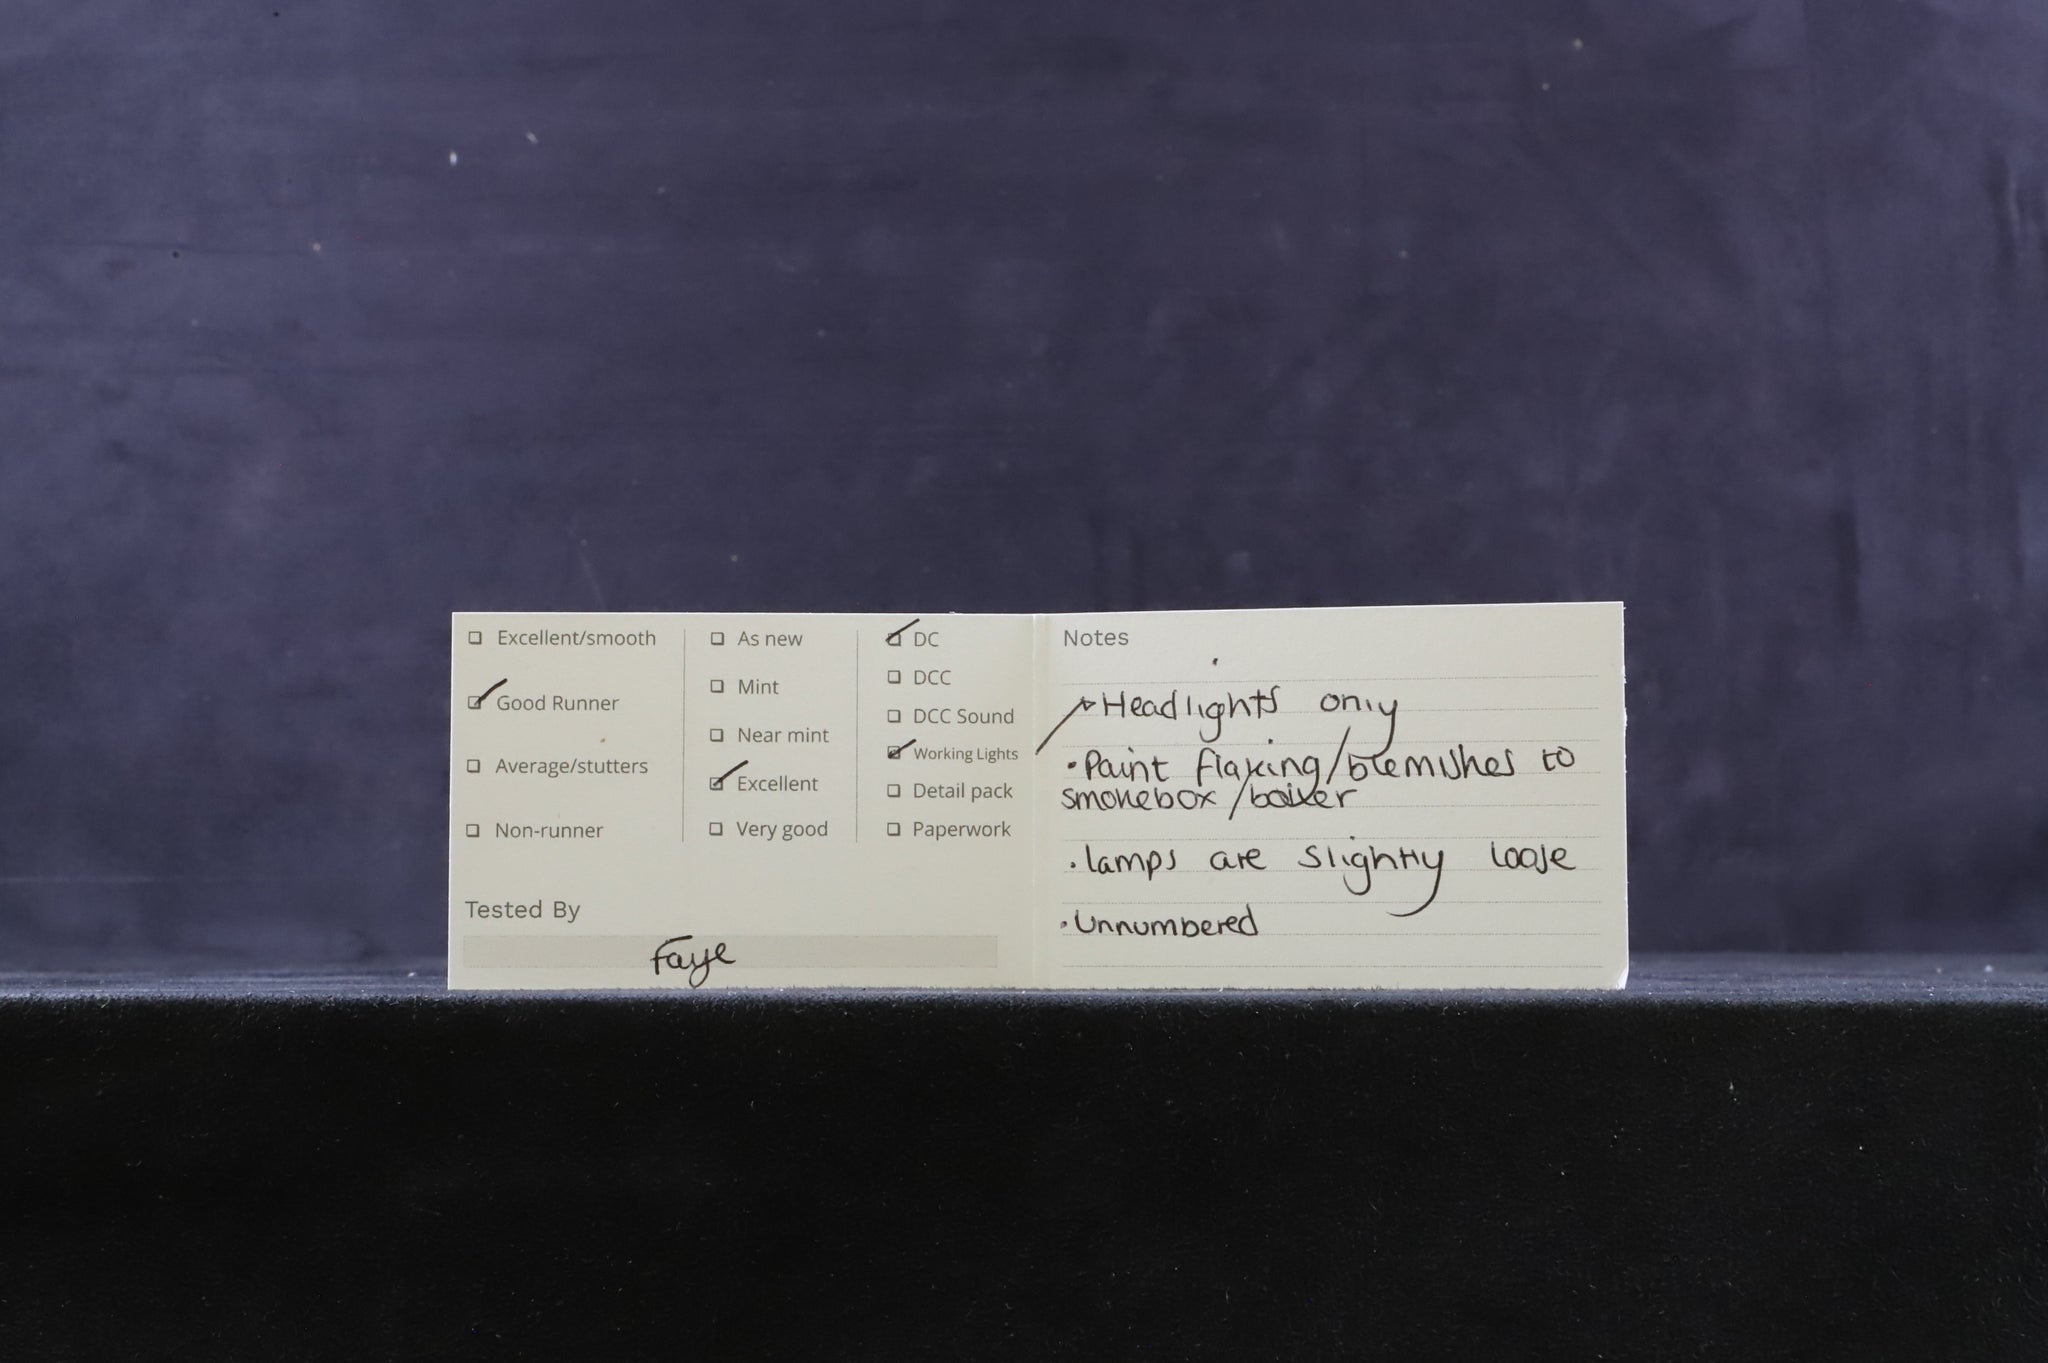 Excellent/smooth
Good Runner
Average/stutters
Non-runner
As new
Mint
Near mint
Excellent
Very good
DC
DCC
DCC Sound
Working Lights
Detail pack
Paperwork
Tested By
Faye
Notes
Headlights only
• Paint flaking/blemishes to
smokebox/boiler
• lamps are slightly loose
• Unnumbered